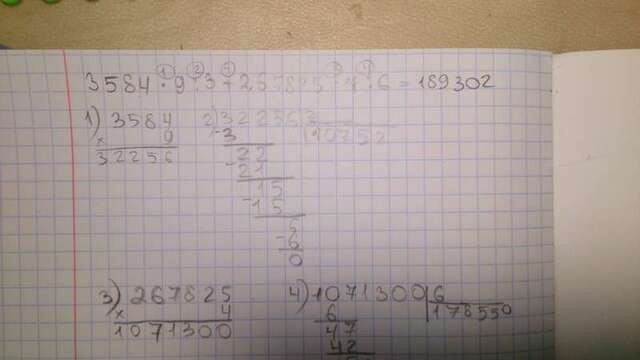 3584 · 9 : 3 + 267825 · 4 : 6 = 189302
1) 3584
× 9
32256
2) 32256 3
-3 10752
22
-21
15
-15
6
-6
0
3) 267825
× 4
1071300
4) 1071300 6
6 178550
47
42